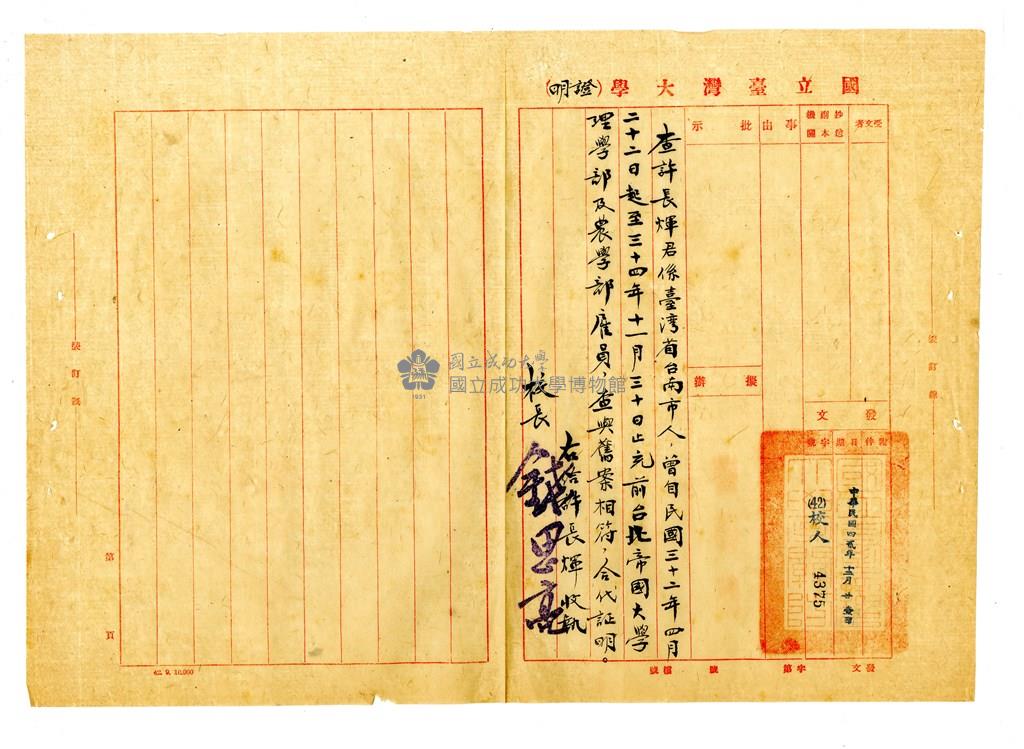 國立臺灣大學(證明)
受文者
抄送
副本
機關
事由
批示
擬辦
發文
附件
日期
字號
中華民國四貳年十二月廿壹日
(42)校人
4375
查許長煇君係臺湾省台南市人，曾自民國三十二年四月
二十二日起至三十四年十一月三十日止充前台北帝國大學
理學部及農學部雇員，查與舊案相符，合代証明。
右給許長煇收執
校長 錢思亮
發文 字第 號
檔號
裝訂線
裝訂線
第 頁
42. 9. 10,000
國立成功大學
國立成功大學博物館
1931